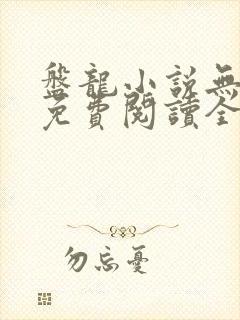 盤龍小說無
免費閱讀全
勿忘憂